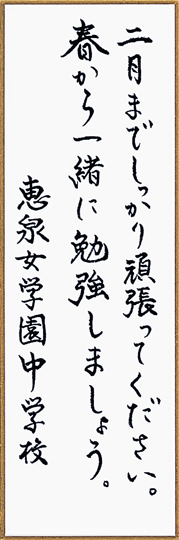 二月までしっかり頑張ってください。
春から一緒に勉強しましょう。
恵泉女学園中学校